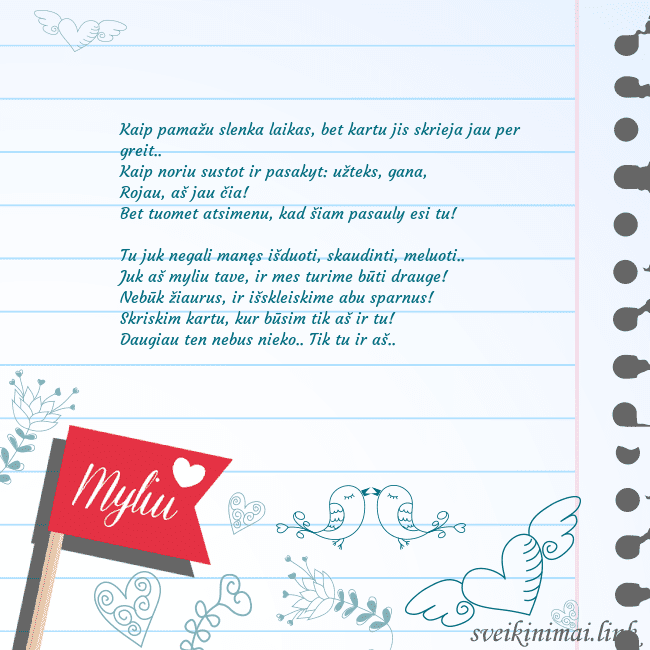 Kaip pamažu slenka laikas, bet kartu jis skrieja jau per
greit..
Kaip noriu sustot ir pasakyt: užteks, gana,
Rojau, aš jau čia!
Bet tuomet atsimenu, kad šiam pasauly esi tu!
Tu juk negali manęs išduoti, skaudinti, meluoti..
Juk aš myliu tave, ir mes turime būti drauge!
Nebūk žiaurus, ir išskleiskime abu sparnus!
Skriskim kartu, kur būsim tik aš ir tu!
Daugiau ten nebus nieko.. Tik tu ir aš..
Myliu
sveikinimai.link